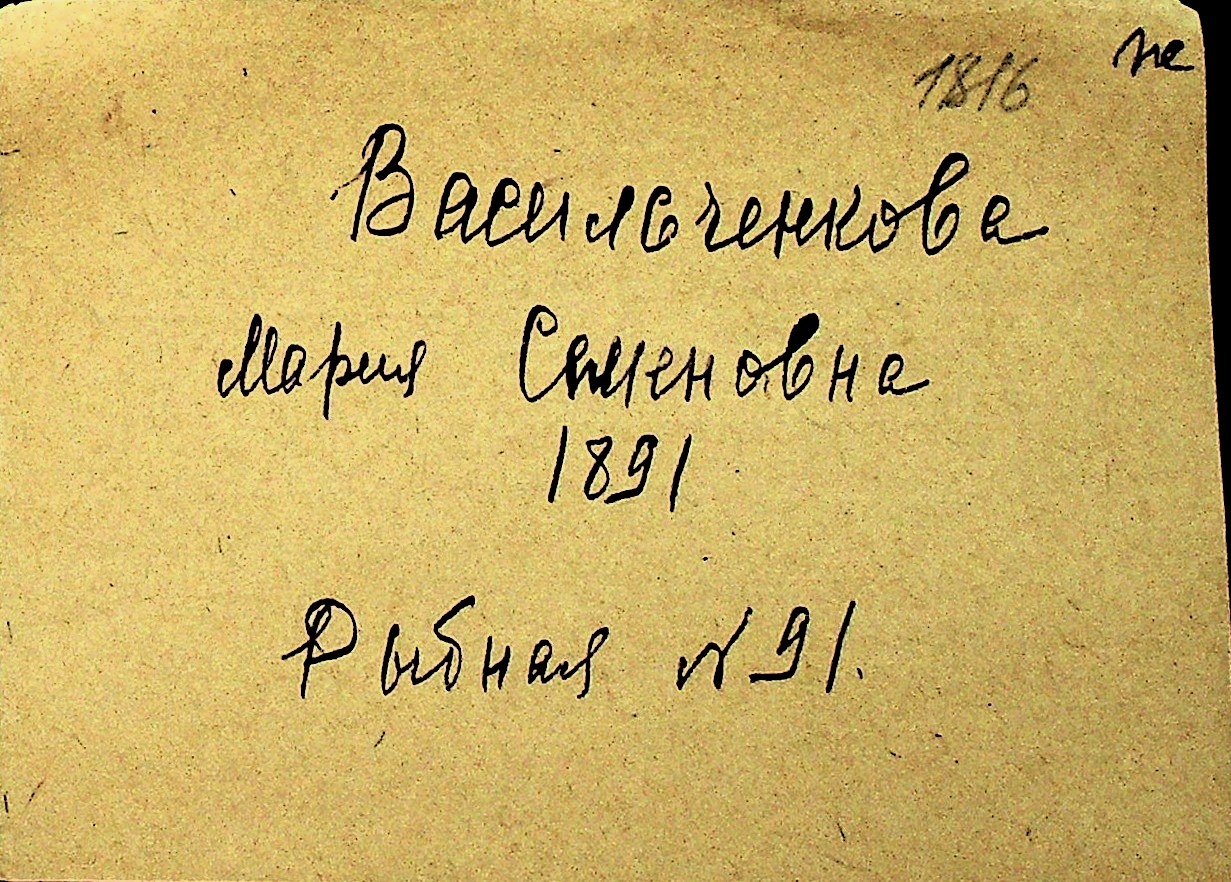 1816
Васильченкова
Мария Семеновна
1891
Рыбная №91.